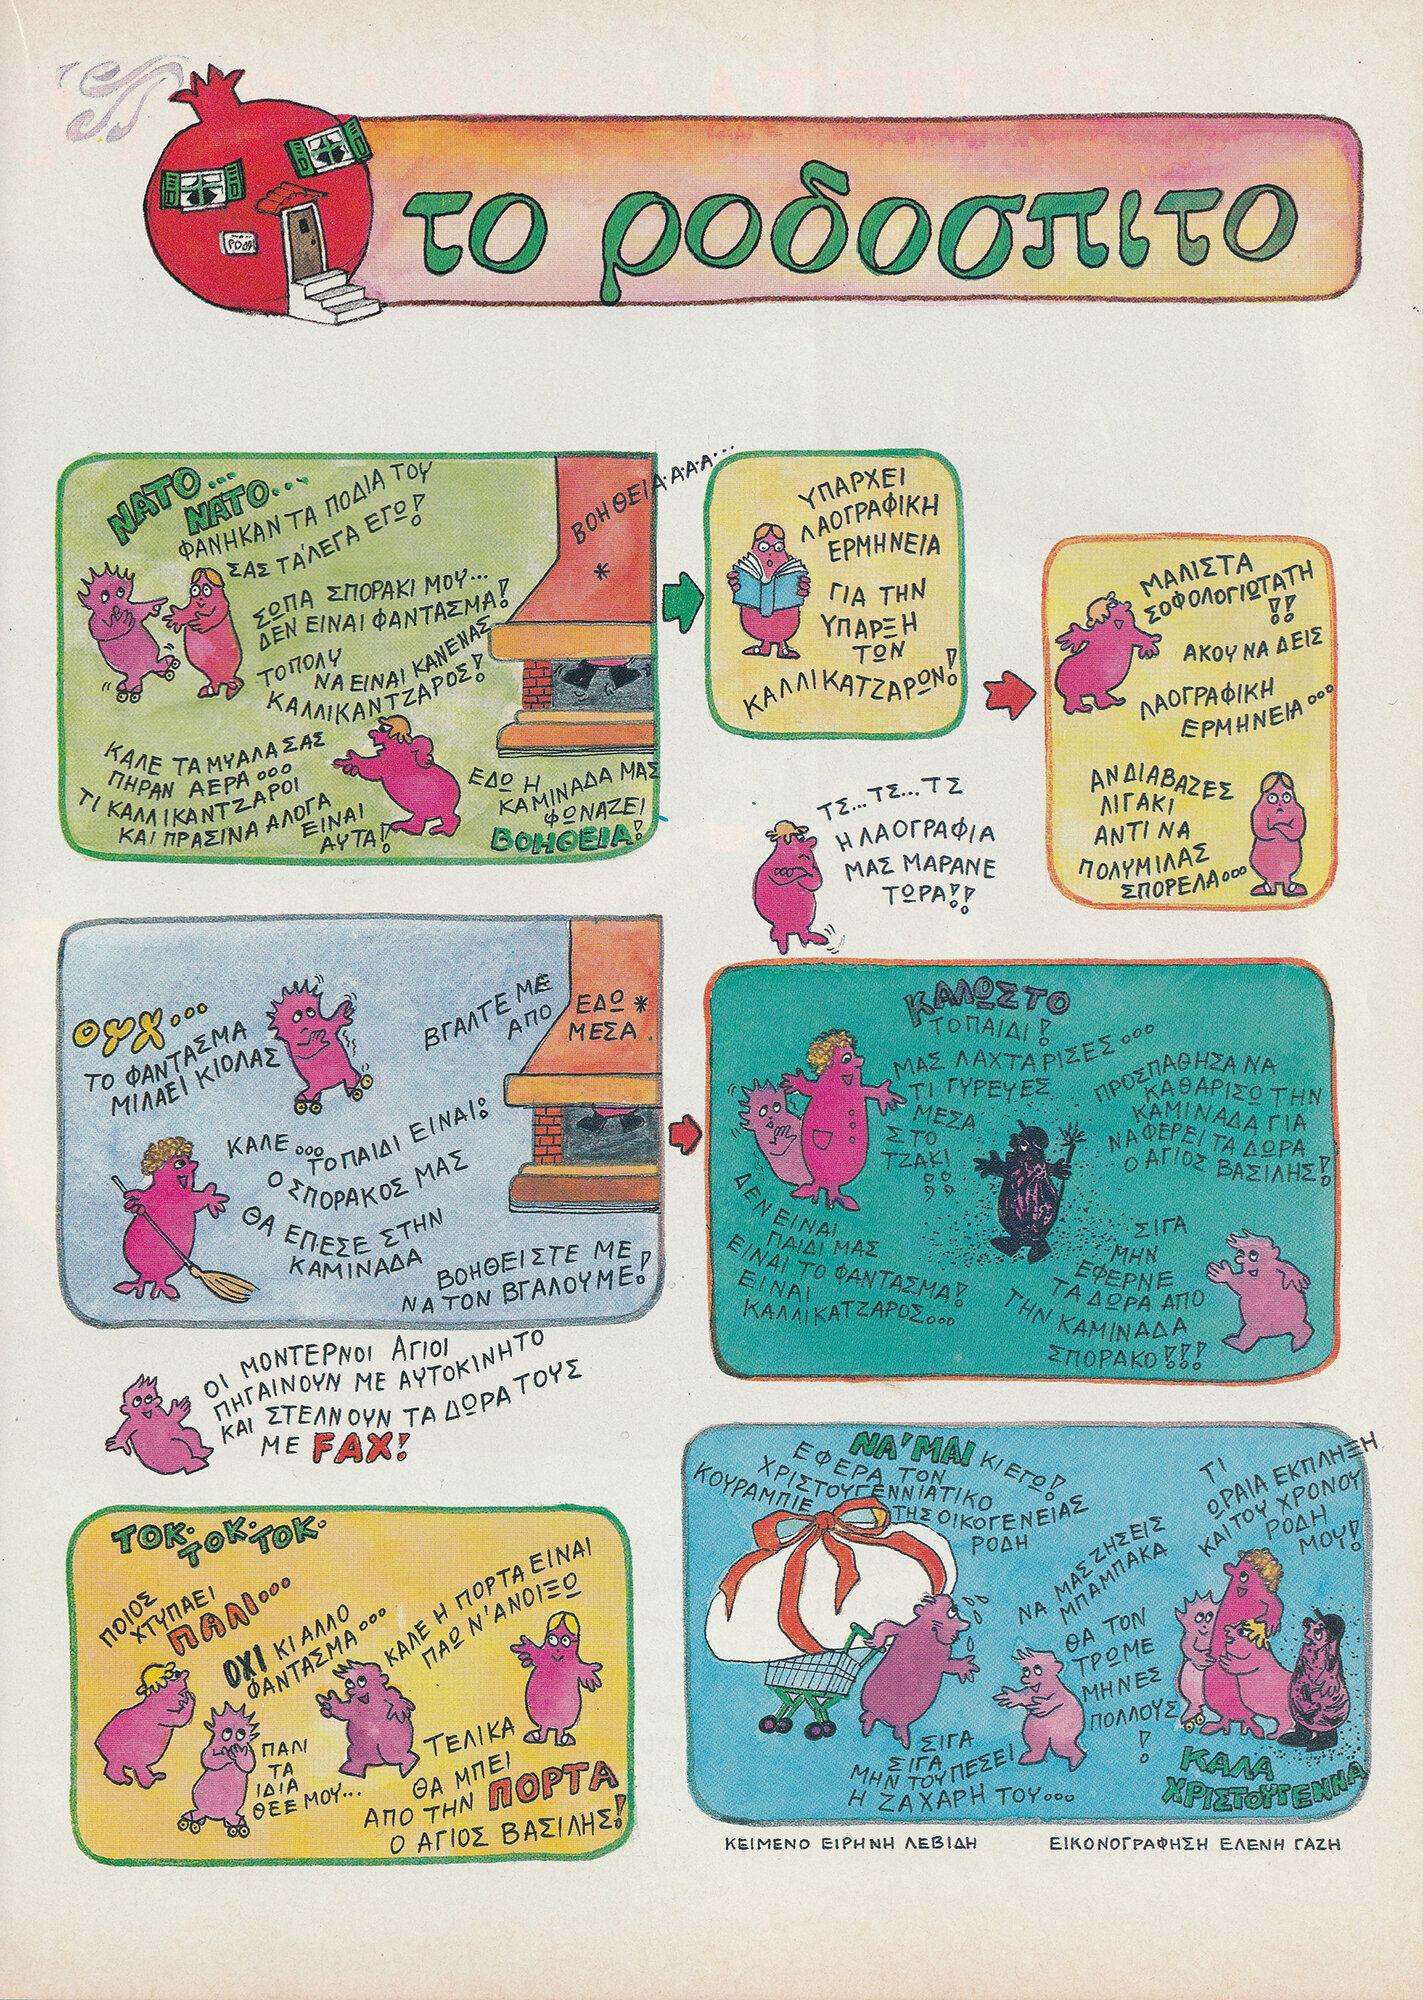 το ροδοσπιτο
ΡΟΔΗ
ΝΑΤΟ...
ΝΑΤΟ...
ΦΑΝΗΚΑΝ ΤΑ ΠΟΔΙΑ ΤΟΥ
ΣΑΣ ΤΑ'ΛΕΓΑ ΕΓΩ!
ΣΩΠΑ ΣΠΟΡΑΚΙ ΜΟΥ...
ΔΕΝ ΕΙΝΑΙ ΦΑΝΤΑΣΜΑ!
ΤΟ ΠΟΛΥ
ΝΑ ΕΙΝΑΙ ΚΑΝΕΝΑΣ
ΚΑΛΛΙΚΑΝΤΖΑΡΟΣ!
ΒΟΗΘΕΙΑ·Α·Α·Α...
*
ΚΑΛΕ ΤΑ ΜΥΑΛΑ ΣΑΣ
ΠΗΡΑΝ ΑΕΡΑ...
ΤΙ ΚΑΛΛΙΚΑΝΤΖΑΡΟΙ
ΚΑΙ ΠΡΑΣΙΝΑ ΑΛΟΓΑ
ΕΙΝΑΙ
ΑΥΤΑ!
ΕΔΩ Η
ΚΑΜΙΝΑΔΑ ΜΑΣ
ΦΩΝΑΖΕΙ
ΒΟΗΘΕΙΑ!
ΥΠΑΡΧΕΙ
ΛΑΟΓΡΑΦΙΚΗ
ΕΡΜΗΝΕΙΑ
ΓΙΑ ΤΗΝ
ΥΠΑΡΞΗ
ΤΩΝ
ΚΑΛΛΙΚΑΤΖΑΡΩΝ!
ΜΑΛΙΣΤΑ
ΣΟΦΟΛΟΓΙΩΤΑΤΗ
!!
ΑΚΟΥ ΝΑ ΔΕΙΣ
ΛΑΟΓΡΑΦΙΚΗ
ΕΡΜΗΝΕΙΑ...
ΑΝ ΔΙΑΒΑΖΕΣ
ΛΙΓΑΚΙ
ΑΝΤΙ ΝΑ
ΠΟΛΥΜΙΛΑΣ
ΣΠΟΡΕΛΑ...
ΤΣ...ΤΣ...ΤΣ
Η ΛΑΟΓΡΑΦΙΑ
ΜΑΣ ΜΑΡΑΝΕ
ΤΩΡΑ!!
ΟΥΧ...
ΤΟ ΦΑΝΤΑΣΜΑ
ΜΙΛΑΕΙ ΚΙΟΛΑΣ
ΒΓΑΛΤΕ ΜΕ
ΑΠΟ
ΕΔΩ *
ΜΕΣΑ
ΚΑΛΕ...
ΤΟ ΠΑΙΔΙ ΕΙΝΑΙ:
Ο ΣΠΟΡΑΚΟΣ ΜΑΣ
ΘΑ ΕΠΕΣΕ ΣΤΗΝ
ΚΑΜΙΝΑΔΑ
ΒΟΗΘΕΙΣΤΕ ΜΕ
ΝΑ ΤΟΝ ΒΓΑΛΟΥΜΕ!
ΚΑΛΩΣΤΟ
ΤΟ ΠΑΙΔΙ!
ΜΑΣ ΛΑΧΤΑΡΙΣΕΣ...
ΤΙ ΓΥΡΕΥΕΣ
ΜΕΣΑ
ΣΤΟ
ΤΖΑΚΙ
;;
ΠΡΟΣΠΑΘΗΣΑ ΝΑ
ΚΑΘΑΡΙΣΩ ΤΗΝ
ΚΑΜΙΝΑΔΑ ΓΙΑ
ΝΑ ΦΕΡΕΙ ΤΑ ΔΩΡΑ
Ο ΑΓΙΟΣ ΒΑΣΙΛΗΣ!
ΔΕΝ ΕΙΝΑΙ
ΠΑΙΔΙ ΜΑΣ
ΕΙΝΑΙ ΤΟ ΦΑΝΤΑΣΜΑ!
ΕΙΝΑΙ
ΚΑΛΛΙΚΑΤΖΑΡΟΣ...
ΣΙΓΑ
ΜΗΝ
ΕΦΕΡΝΕ
ΤΑ ΔΩΡΑ ΑΠΟ
ΤΗΝ ΚΑΜΙΝΑΔΑ
ΣΠΟΡΑΚΟ!!!
ΟΙ ΜΟΝΤΕΡΝΟΙ ΑΓΙΟΙ
ΠΗΓΑΙΝΟΥΝ ΜΕ ΑΥΤΟΚΙΝΗΤΟ
ΚΑΙ ΣΤΕΛΝΟΥΝ ΤΑ ΔΩΡΑ ΤΟΥΣ
ΜΕ FAX!
ΤΟΚ·ΤΟΚ·ΤΟΚ·
ΠΟΙΟΣ
ΧΤΥΠΑΕΙ
ΠΑΛΙ...
ΟΧΙ ΚΙ ΑΛΛΟ
ΦΑΝΤΑΣΜΑ...
ΚΑΛΕ Η ΠΟΡΤΑ ΕΙΝΑΙ
ΠΑΩ Ν'ΑΝΟΙΞΩ
ΠΑΛΙ
ΤΑ
ΙΔΙΑ
ΘΕΕ ΜΟΥ...
ΤΕΛΙΚΑ
ΘΑ ΜΠΕΙ
ΑΠΟ ΤΗΝ ΠΟΡΤΑ
Ο ΑΓΙΟΣ ΒΑΣΙΛΗΣ!
ΝΑ'ΜΑΙ ΚΙ ΕΓΩ!
ΕΦΕΡΑ ΤΟΝ
ΧΡΙΣΤΟΥΓΕΝΝΙΑΤΙΚΟ
ΚΟΥΡΑΜΠΙΕ
ΤΗΣ ΟΙΚΟΓΕΝΕΙΑΣ
ΡΟΔΗ
ΝΑ ΜΑΣ ΖΗΣΕΙΣ
ΜΠΑΜΠΑΚΑ
ΘΑ ΤΟΝ
ΤΡΩΜΕ
ΜΗΝΕΣ
ΠΟΛΛΟΥΣ
!
ΤΙ
ΩΡΑΙΑ ΕΚΠΛΗΞΗ
ΚΑΙ ΤΟΥ ΧΡΟΝΟΥ
ΡΟΔΗ
ΜΟΥ!
ΣΙΓΑ
ΣΙΓΑ
ΜΗΝ ΤΟΥ ΠΕΣΕΙ
Η ΖΑΧΑΡΗ ΤΟΥ...
ΚΑΛΑ
ΧΡΙΣΤΟΥΓΕΝΝΑ
ΚΕΙΜΕΝΟ ΕΙΡΗΝΗ ΛΕΒΙΔΗ
ΕΙΚΟΝΟΓΡΑΦΗΣΗ ΕΛΕΝΗ ΓΑΖΗ